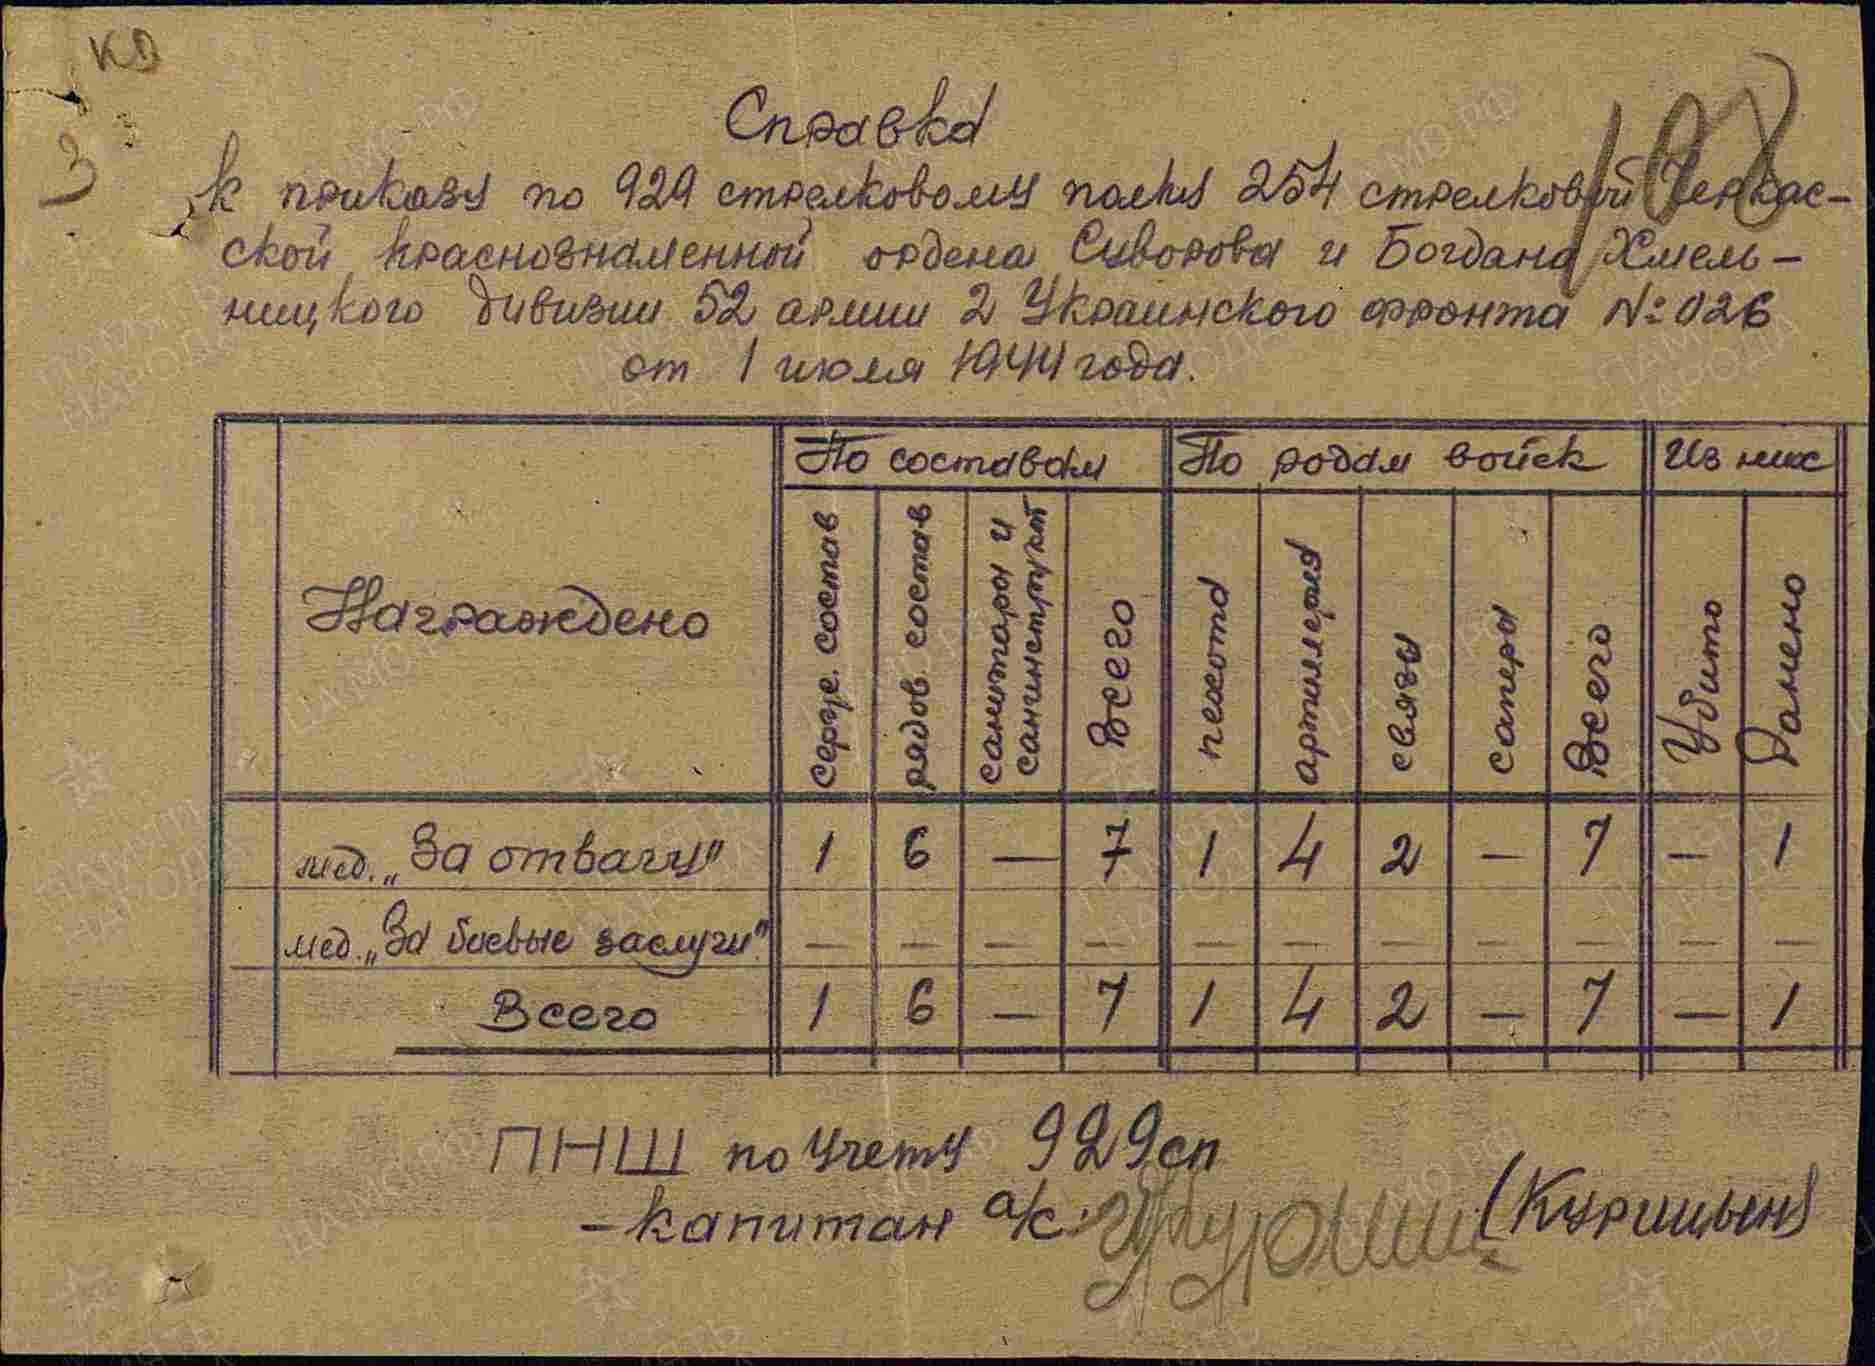 КВ
3
198
Справка
к приказу по 929 стрелковому полку 254 стрелковой Черкас-
ской Краснознаменной ордена Суворова и Богдана Хмель-
ницкого дивизии 52 армии 2 Украинского фронта №: 026
от 1 июля 1944 года.
Награждено
По составам
По родам войск
Из них
серж. состав
рядов. состав
санитары и
санинструкт
Всего
пехота
артилерия
связи
саперы
Всего
Убито
Ранено
мед. „За отвагу" 1 6 — 7 1 4 2 — 7 — 1
мед. „За боевые заслуги" — — — — — — — — — — —
Всего 1 6 — 7 1 4 2 — 7 — 1
ПНШ по учету 929 сп
- капитан а/с. (Курицын)
ПАМЯТЬ
НАРОДА
ЦАМО.РФ